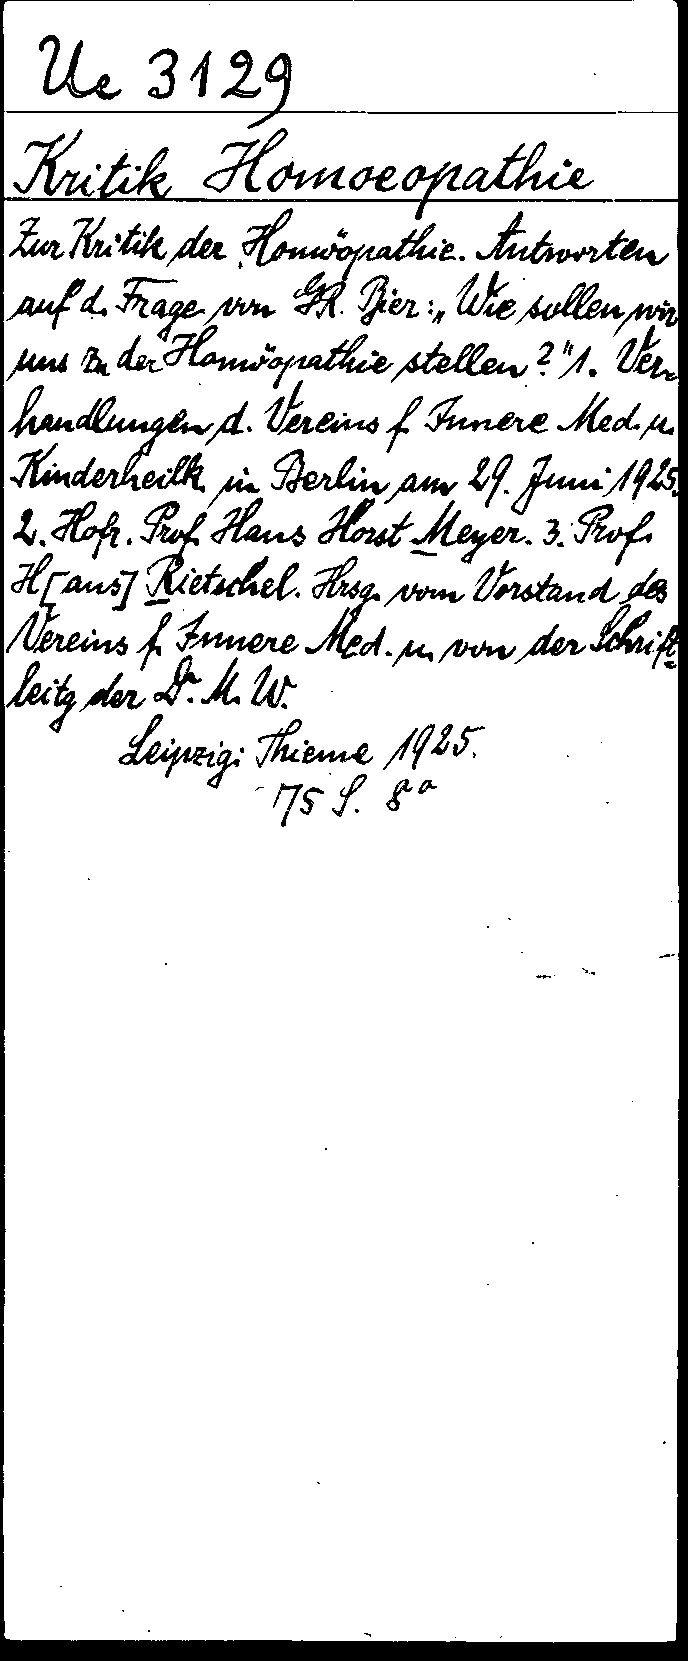 Ue 3129
Kritik Homoeopathie
Zur Kritik der Homöopathie. Antworten
auf d. Frage von GR. Bier: „Wie sollen wir
uns zu der Homöopathie stellen?" 1. Ver-
handlungen d. Vereins f. Innere Med. u.
Kinderheilk. in Berlin am 29. Juni 1925.
2. Hofr. Prof. Hans Horst Meyer. 3. Prof.
H[ans] Rietschel. Hrsg. vom Vorstand des
Vereins f. Innere Med. u. von der Schrift-
leitg der D. M. W.
Leipzig: Thieme 1925.
75 S. 8°